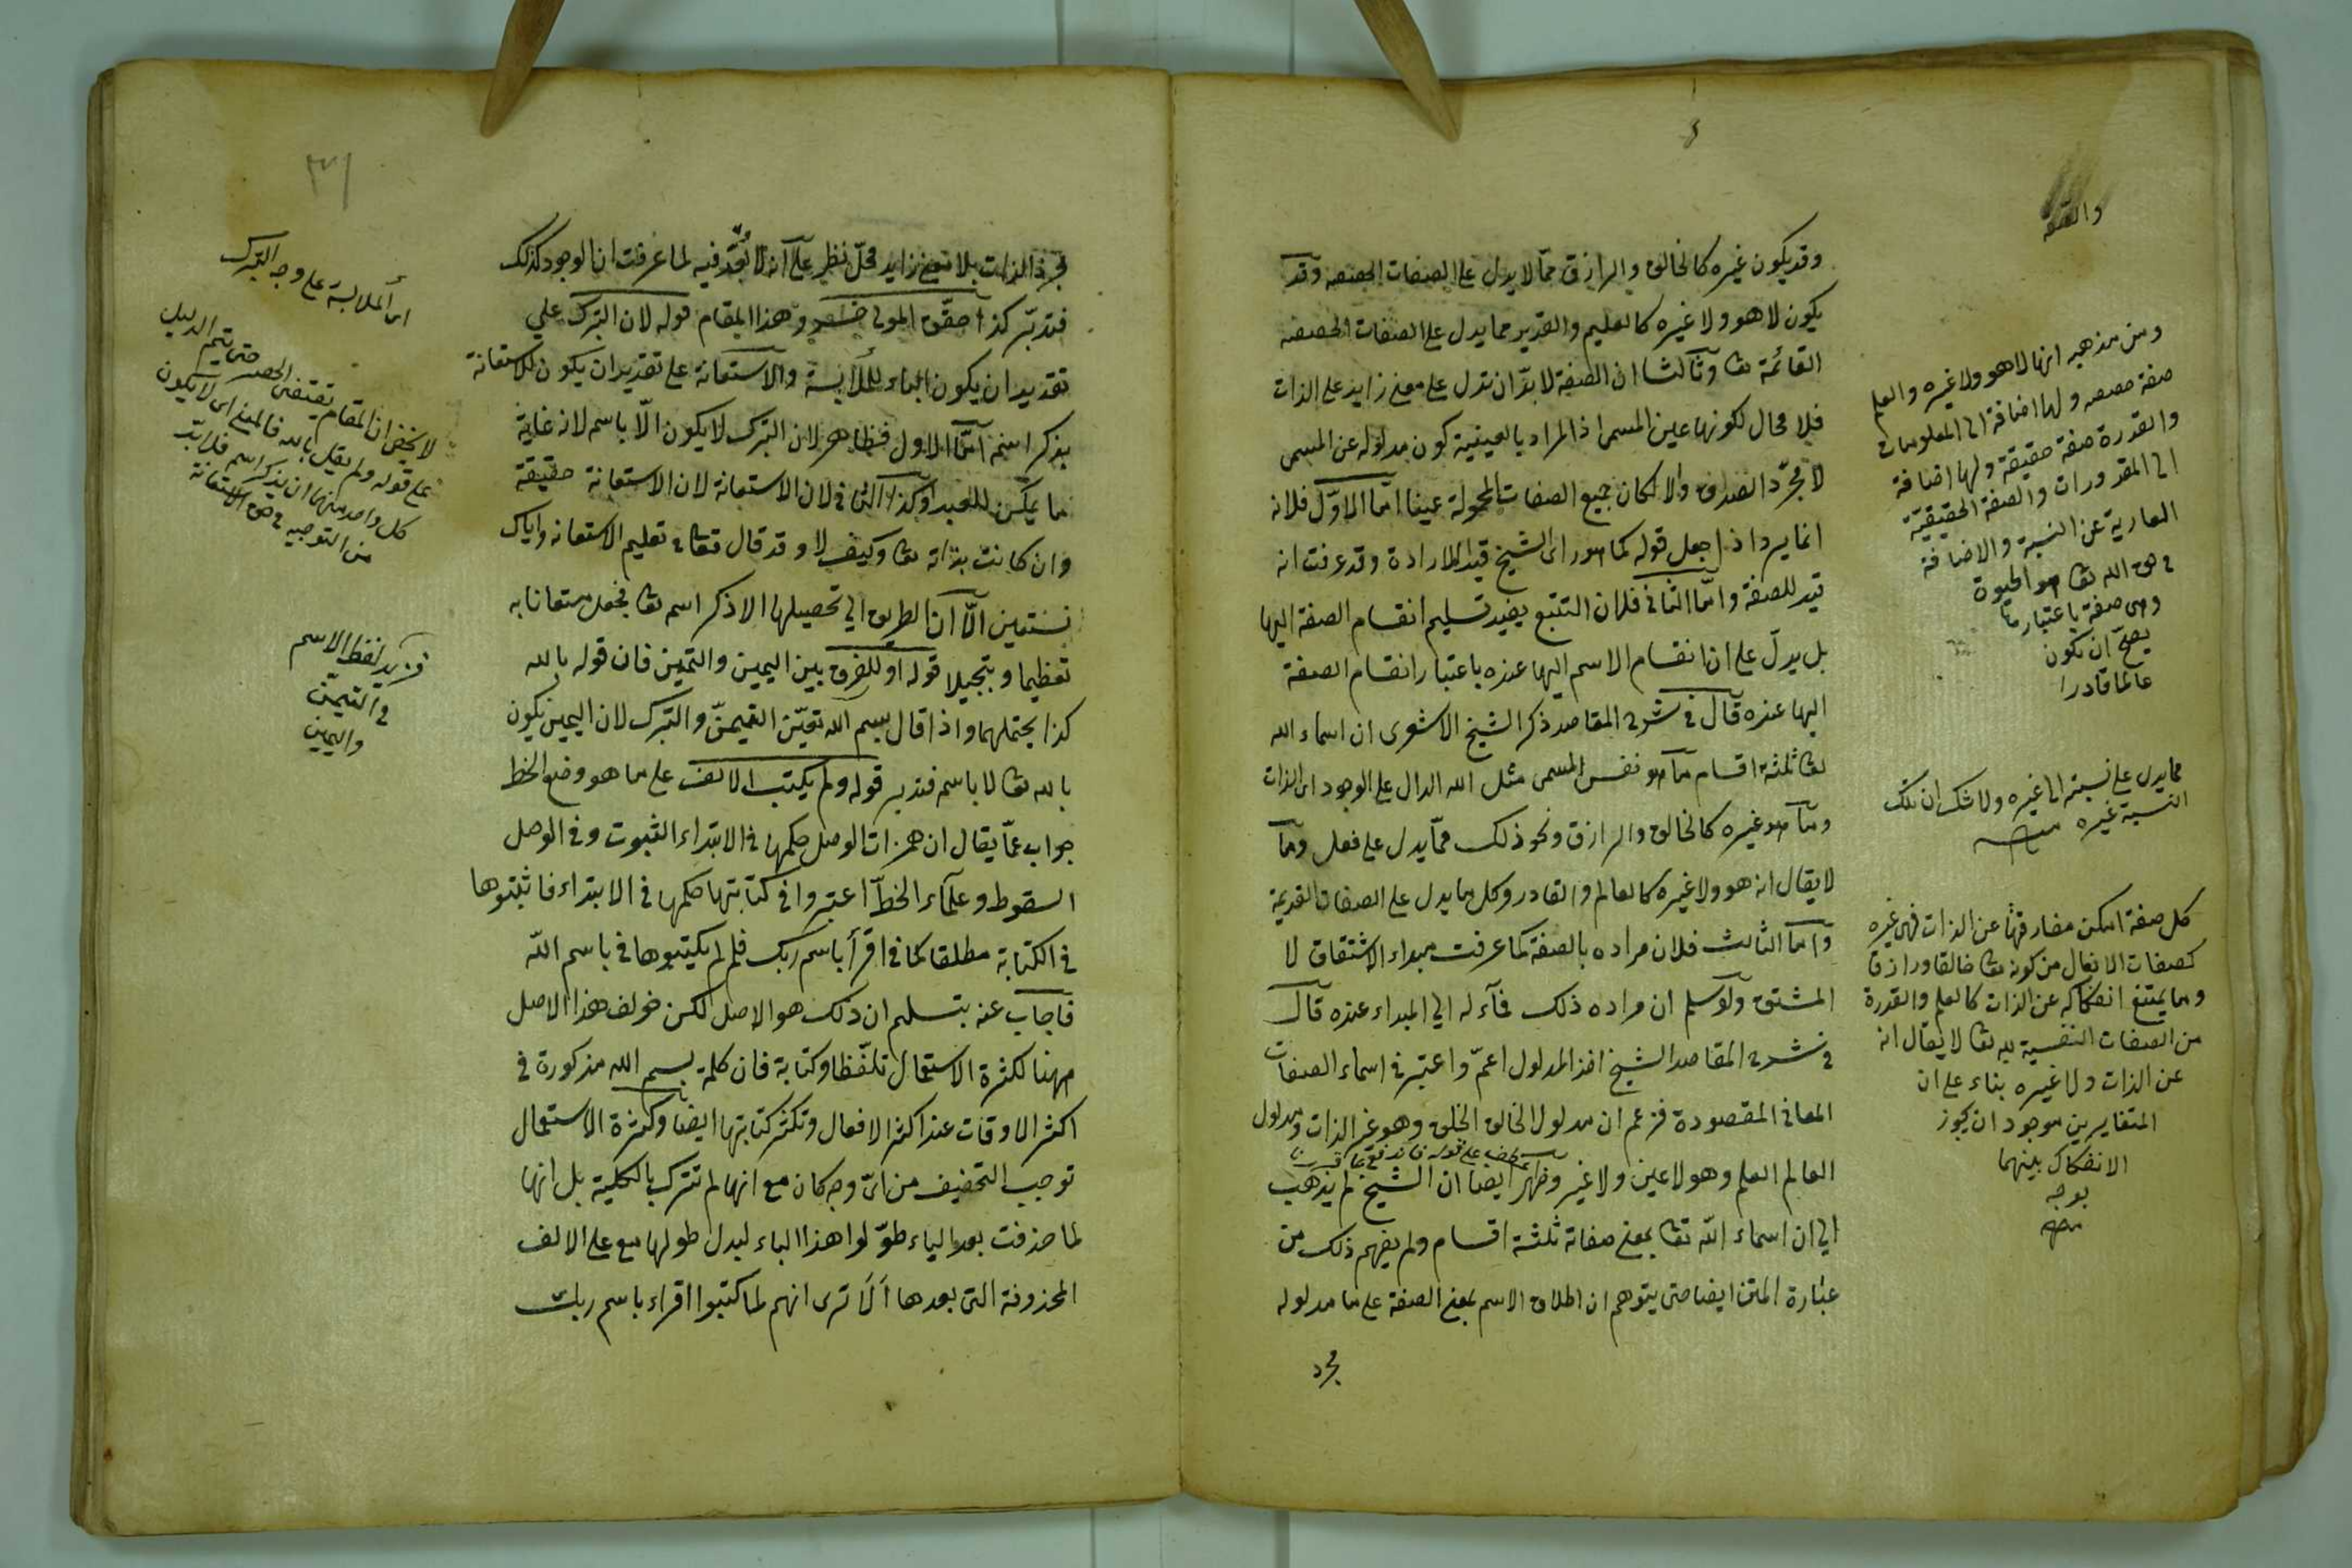 وقد يكون غيره كالخالق والرازق مما لا يدل على الصفات الحقيقية وقد
يكون لا هو ولا غيره كالعليم والقدير مما يدل على الصفات الحقيقية
القائمة تعا وثالثا ان الصفة لا بدّ ان تدل على معنى زايد على الذات
فلا مجال لكونها عين المسمى اذ المراد بالعينية كون مدلوله عن المسمى
لا مجرّد الصدق والا لكان جميع الصفات المحمولة عينا امّا الاوّل فلانه
انما يرد اذا جعل قوله كما هو راى الشيخ قيدا للارادة وقد عرفت انه
قيد للصفة وامّا الثانى فلان التتبع يفيد تسليم انقسام الصفة اليها
بل يدلّ على ان انقسام الاسم اليها عنده باعتبار انقسام الصفة
اليها عنده قال فى شرح المقاصد ذكر الشيخ الاشعرى ان اسماء الله
تعا ثلثة اقسام ما هو نفس المسمى مثل الله الدال على الوجود اى الذات
وما هو غيره كالخالق والرازق ونحو ذلك مما يدل على فعل وما
لا يقال انه هو ولا غيره كالعالم والقادر وكل ما يدل على الصفات القديمة
واما الثالث فلان مراده بالصفة كما عرفت مبداء الاشتقاق لا
المشتق ولو سلم ان مراده ذلك فمآله الى المبداء عنده قال
فى شرح المقاصد الشيخ اخذ المدلول اعمّ واعتبر فى اسماء الصفات
المعانى المقصودة فزعم ان مدلول الخالق الخلق وهو غير الذات ومدلول
العالم العلم وهو لا عين ولا غير وظهر ايضا ان الشيخ لم يذهب
الى ان اسماء الله تعا بمعنى صفاته ثلثة اقسام ولم يفهم ذلك من
عبارة المتن ايضا حتى يتوهم ان اطلاق الاسم بمعنى الصفة على ما مدلوله
مجرد
ومن مذهبه انها لا هو ولا غيره والعلم
صفة حقيقية ولها اضافة الى المعلومات
والقدرة صفة حقيقة ولها اضافة
الى المقدورات والصفة الحقيقيّة
العارية عن النسبة والاضافة
فى حق الله تعا هو الحيوة
وهى صفة باعتبارها
يصحّ ان يكون
عالما قادرا
مما يدل على نسبته الى غيره ولا شك ان تلك
النسبة غيره منه
كل صفة امكن مفارقتها عن الذات فهى غيره
كصفات الافعال من كونه تعا خالقا ورازقا
وما يمتنع انفكاكه عن الذات كالعلم والقدرة
من الصفات النفسية لله تعا لا يقال انه
عن الذات ولا غيره بناء على ان
المتغايرين موجودان يجوز
الانفكاك بينهما
بوجه
منه
مجرد الذات بلا معنى زايد محلّ نظر على انه لا بُعْد فيه لما عرفت ان الوجود كذلك
فتدبّر كذا حقّق المولى خسرو هذا المقام قوله لان التبرك على
تقدير ان يكون الباء للملابسة والاستعانة على تقدير ان يكون للاستعانة
بذكر اسمه امّا الاول فظاهر لان التبرك لا يكون الّا باسم لانه غاية
ما يمكن للعبد وكذا الثانى لان الاستعانة لان الاستعانة حقيقة
وان كانت بذاته تعا وكيف لا وقد قال تعا فى تعليم الاستعانه واياك
نستعين الّا ان الطريق الى تحصيلها الا ذكر اسم تعا فجعل مستعانا به
تعظيما وتبجيلا قوله او للفرق بين اليمين والتيمن فان قوله بالله
كذا يحتملهما واذا قال بسم الله تعيّن التيمنّ والتبرك لان اليمين يكون
بالله تعا لا باسم فتدبر قوله ولم يكتب الالف على ما هو وضع الخط
جواب عمّا يقال ان همزات الوصل حكمها فى الابتداء الثبوت وفى الوصل
السقوط وعلماء الخطّ اعتبروا فى كتابتها حكمها فى الابتداء فاثبتوها
فى الكتابة مطلقا كما فى اقرأ باسم ربك فلم لم يكتبوها فى باسم الله
فاجاب عنه بتسليم ان ذلك هو الاصل لكن خولف هذا الاصل
ههنا لكثرة الاستعمال تلفّظا وكتابة فان كلمة بسم الله مذكورة فى
اكثر الاوقات عند اكثر الافعال وتكثر كتابتها ايضا وكثرة الاستعمال
توجب التخفيف من اىّ وجه كان مع انها لم تترك بالكلية بل انها
لما حذفت بعد الباء طوّلوا هذا الباء ليدل طولها مع على الالف
المحذوفة التى بعدها ألا ترى انهم لما كتبوا اقراء باسم ربك
اى الملابسة على وجه التبرك
لا يخفى ان المقام يقتضى الحصر حتى يتم الدليل
على قوله ولم يقل بالله فالمعنى اى لا يكون
كل واحد منهما ان يذكر اسم فلا بد
من التوجيه فى صورة الاستعانة
فزيد لفظ الاسم
فى التيمّن
واليمين